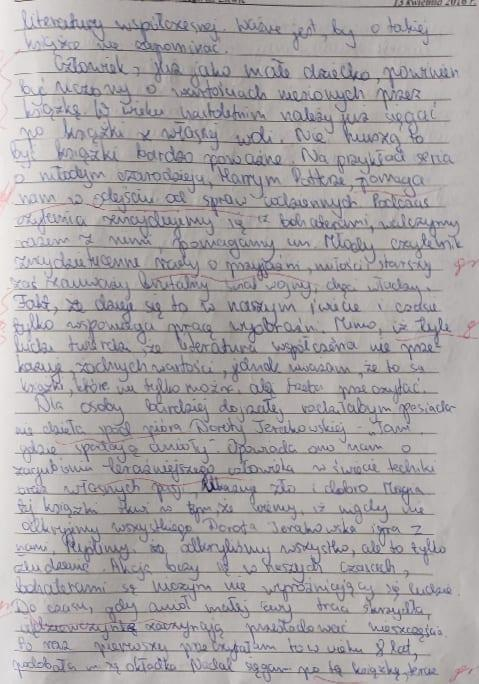 13 kwietnia 2016 r.
literatury współczesnej. Ważne jest, by o takiej
książce nie zapominać.
Człowiek, już jako małe dziecko, powinien
być uczony o wartościach niesionych przez
książkę. W wieku nastoletnim należy już sięgać
po książki z własnej woli. Nie muszą to
być książki bardzo poważne. Na przykład seria
o młodym czarodzieju, Harrym Potterze, pomaga
nam w odejściu od spraw codziennych. Podczas
czytania znajdujemy się z bohaterami, walczymy
razem z nimi, pomagamy im. Młody czytelnik
znajdzie cenne rady o przyjaźni, miłości starszy
zaś zauważy brutalny świat wojny, chęci władzy.
Fakt, że dzieje się to w naszym świecie i
tylko wspomaga pracę wyobraźni. Mimo, iż tyle
ludzi twierdzi, że literatura współczesna nie prze-
kazuje żadnych wartości, jednak uważam, że to są
książki, które nie tylko można, ale trzeba przeczytać.
Dla osoby bardziej dojrzałej radziłabym
dzieła spod pióra Doroty Terakowskiej - "Tam
gdzie spadają anioły". Opowiada ono nam o
zagubieniu teraźniejszego człowieka w świecie techniki
oraz własnych zło i dobro. Magia
tej książki tkwi w tym, że wiemy, iż nigdy nie
odkryjemy wszystkiego. Dorota Terakowska igra z
nami. Myślimy, że odkryliśmy wszystko, ale to tylko
złudzenie. Akcja toczy się w naszych czasach,
bohaterami są niczym nie wyróżniający się ludzie.
Do czasu, gdy anioł małej Ewy traci skrzydła,
zaczynają prześladować nieszczęścia.
Po raz pierwszy przeczytałam to w wieku 8 lat,
podobała mi się okładka. Nadal sięgam po tę książkę,